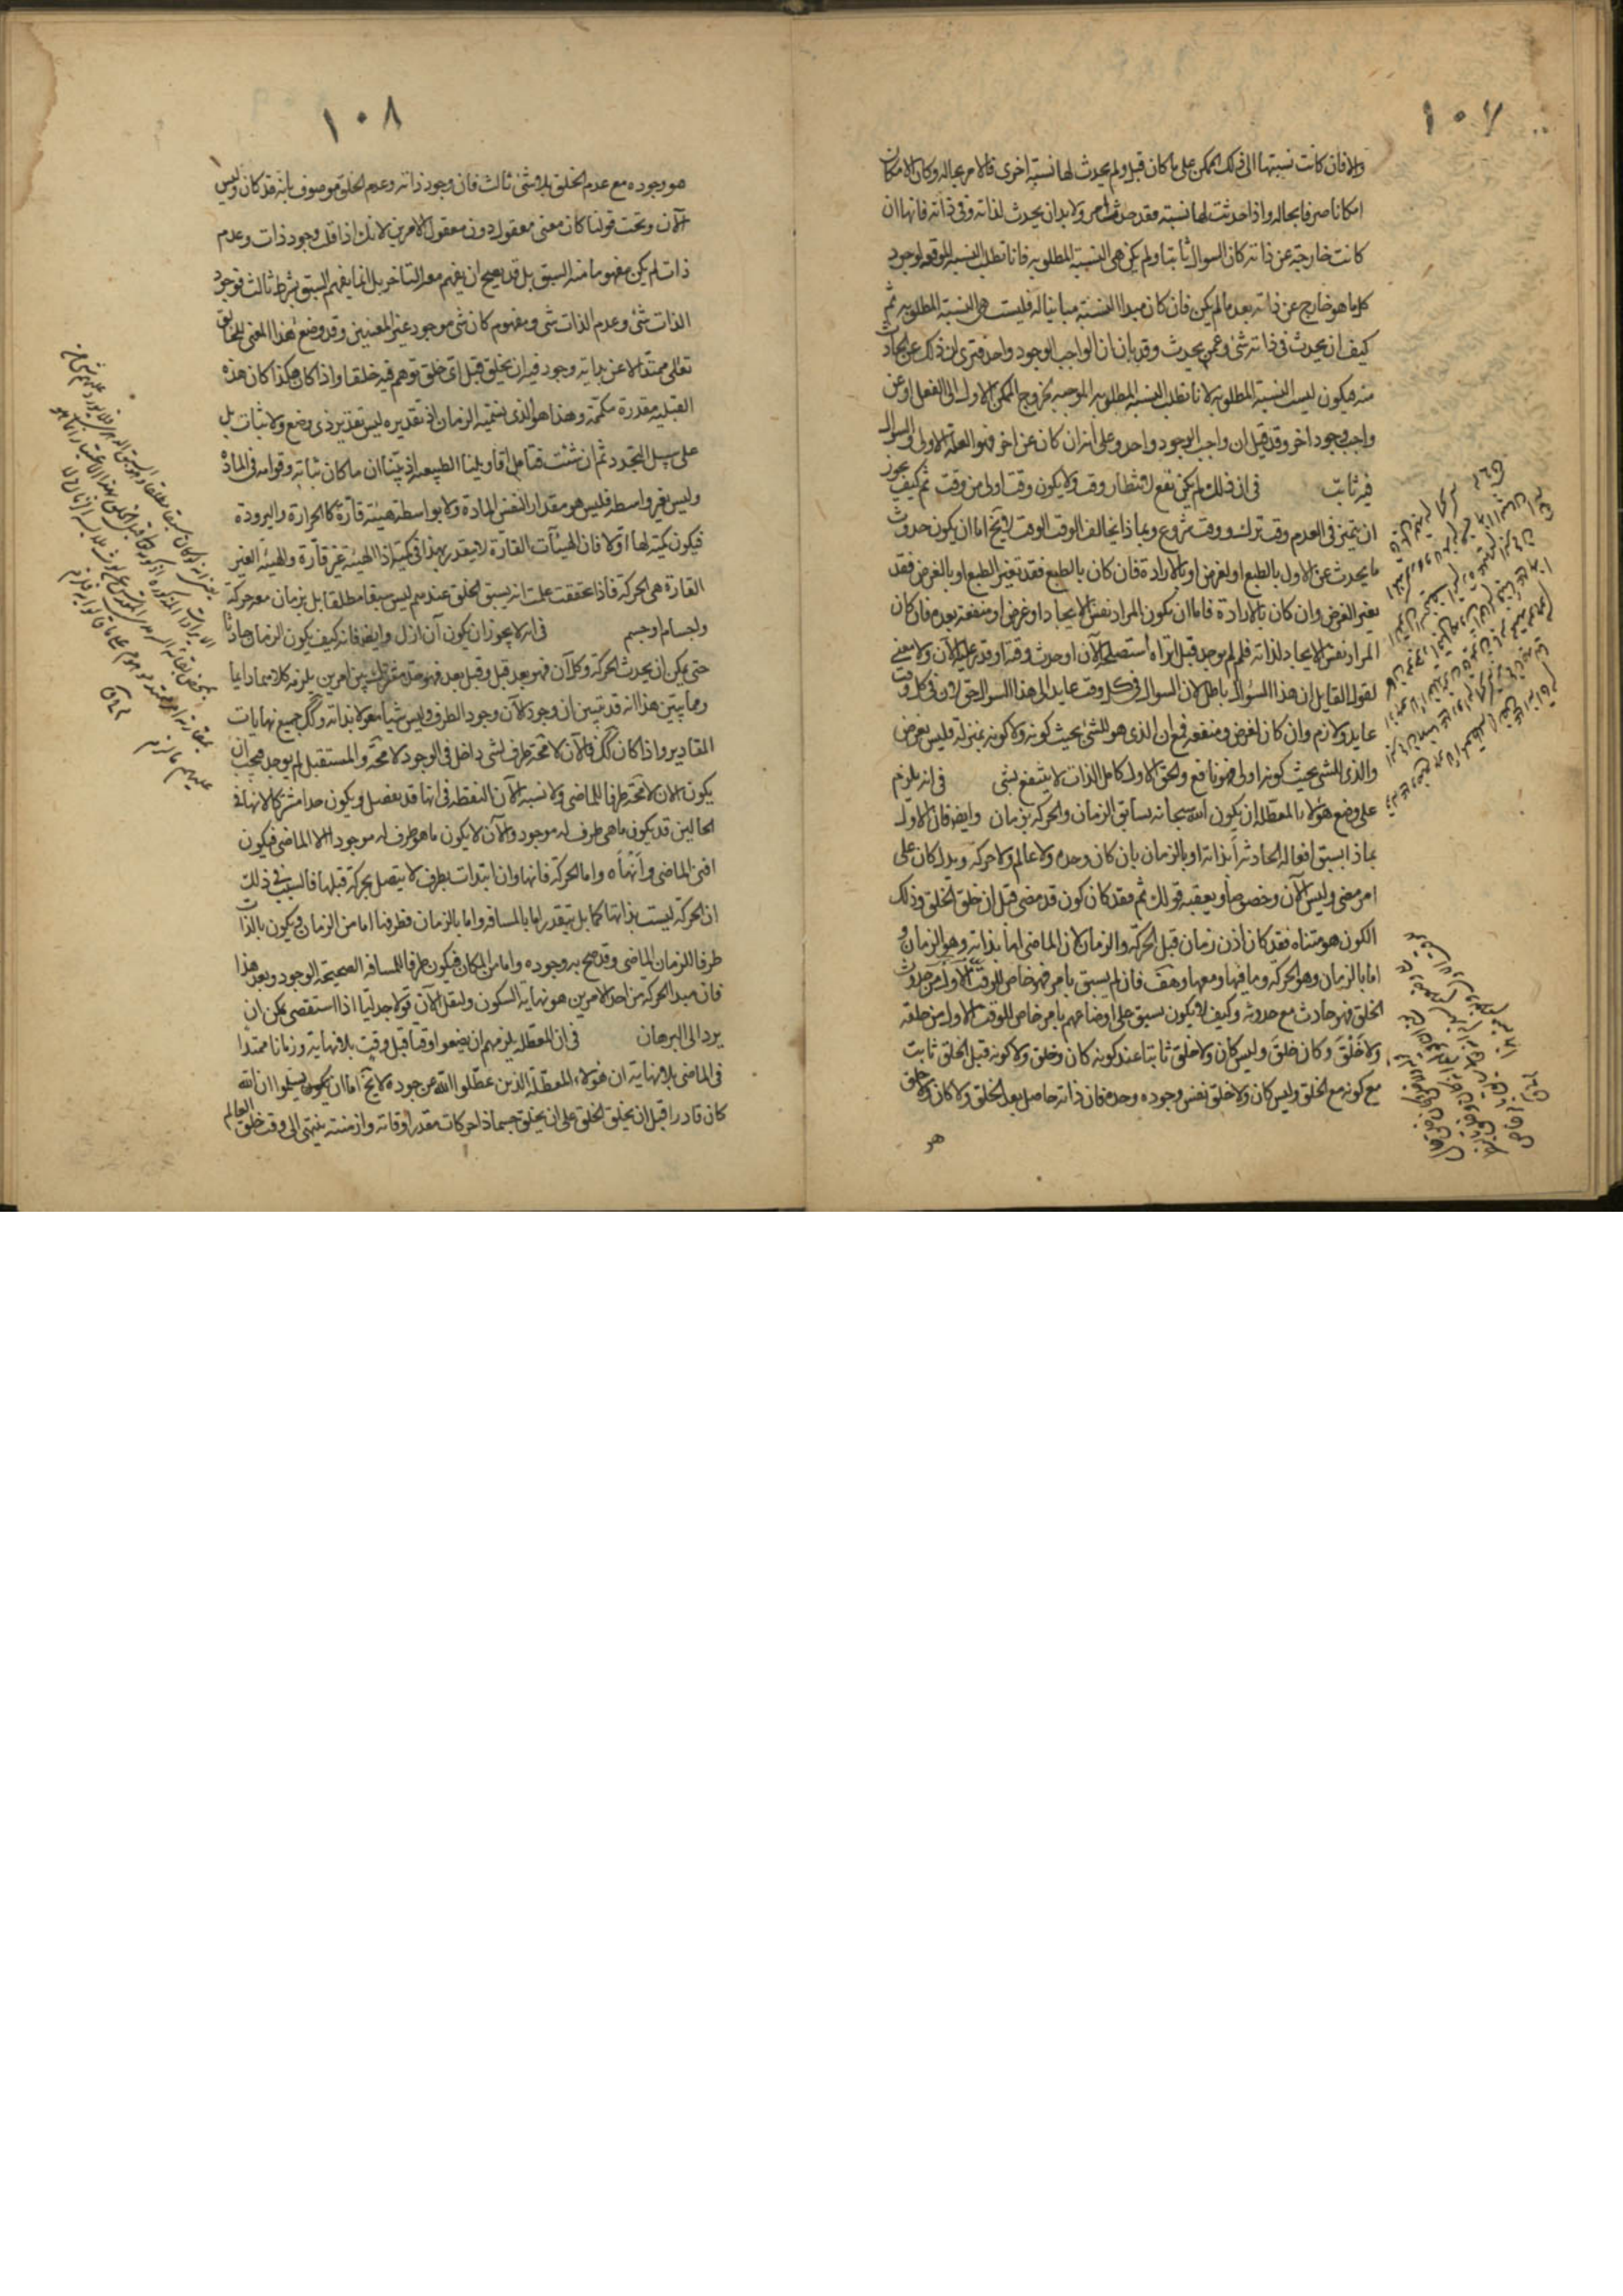 ١٠٧
والا فان كانت نسبتها الى ذلك الممكن على ما كان قبل ولم يحدث لها نسبة اخرى فالامر بحاله وكان الامكان
امكانا صرفا بحاله واذا حدثت لها نسبة فقد حدث امر ولا بد ان يحدث لذاته وفى ذاته فانها ان
كانت خارجة عن ذاته كان السوال ثابتا ولم يكن هى النسبة المطلوبة فانا نطلب النسبة الموقعة لوجود
كل ما هو خارج عن ذاته بعد ما لم يكن فان كان مبدا النسبة مباينا له فليست هى النسبة المطلوبة ثم
كيف ان يحدث فى ذاته شئ وعمن يحدث وقد بان ان الواجب الوجود واحد فترى ان ذلك عن الحادث
منه فيكون ليست النسبة المطلوبة لانا نطلب النسبة المطلوبة الموجبة لخروج الممكن الاول الى الفعل او عن
واجب وجود اخر وقد قيل ان واجب الوجود واحد وعلى انه ان كان عن اخر فهو العلة الاولى والسوال
فيه ثابت فى ان ذلك لم يكن يقع لانتظار وقت ولا يكون وقت اولى من وقت ثم كيف يجوز
ان يتميز فى العدم وقت ترك ووقت شروع وبماذا يخالف الوقت الوقت لا يخ اما ان يكون حدوث
ما يحدث عن الاول بالطبع او لغرض او بالارادة فان كان بالطبع فقد تغير الطبع او بالغرض فقد
تغير الغرض وان كان بالارادة فاما ان يكون المراد نفس الايجاد او غرض او منفعة بعده فان كان
المراد نفس الايجاد لذاته فلم لم يوجد قبل اتراه استصلحه الآن او حدث وقته او قدر عليه الآن ولا معنى
لقول القايل ان هذا السوال باطل لان السوال فى كل وقت عايد بل هذا السوال حق لانه فى كل وقت
عايد ولازم وان كان لغرض ومنفعة فمع ان الذى هو للشئ بحيث كونه ولا كونه بمنزلة فليس بغرض
والذى للشئ بحيث كونه اولى فهو نافع والحق الاول كامل الذات لا ينتفع بشئ فى انه يلزم
على وضع هؤلاء المعطلة ان يكون الله سبحانه سابق الزمان والحركة بزمان وايضا فان الاول
بماذا يسبق افعاله الحادثة أبذاته او بالزمان بان كان وحده ولا عالم ولا حركة ويدل كان على
امر مضى وليس الآن وخصوصا ويعقبه قولك ثم فقد كان كون قد مضى قبل ان خلق الخلق وذلك
الكون هو متناه فقد كان اذن زمان قبل الحركة والزمان لان الماضى اما بذاته وهو الزمان و
اما بالزمان وهو الحركة وما فيها ومعها وهف فان لم يسبق بامر فهو خاص للوقت الاول من حدوث
الخلق فهو حادث مع حدوثه وكيف لا يكون يسبق على اوضاعهم بامر خاص للوقت الاول من خلقه
ولا خَلْقَ وكان خلقَ وليس كان ولا خلق ثابتا عند كونه كان وخلق ولا كونه قبل الخلق ثابت
مع كونه مع الخلق وليس كان ولا خلق نفس وجوده وحده فان ذاته حاصل بعد الخلق ولا كان ولا خلق
هو
١٠٨
هو وجوده مع عدم الخلق بلا شئ ثالث فان وجود ذاته وعدم الخلق موصوف بانه قد كان وليس
الآن وتحت قولنا كان معنى معقول دون معقول الامرين لانك اذا قلت وجود ذات وعدم
ذات لم يكن مفهوما منه السبق بل قد يصح ان يفهم معه التاخر بل انما يفهم السبق بشرط ثالث فوجود
الذات شئ وعدم الذات شئ ومفهوم كان شئ موجود غير المعنيين وقد وضع هذا المعنى للخالق
تعالى ممتدا لا عن بداية وجود فيه ان يخلق قبل اى خلق توهم فيه خلقا واذا كان هكذا كان هذه
القبلية مقدرة مكممة وهذا هو الذى نسميه الزمان اذ تقديره ليس تقدير ذى وضع ولا ثبات بل
على سبيل التجدد ثم ان شئت فتامل اقاويلنا الطبيعية اذ بينا ان ما كان ثباته وقوامه فى المادة
وليس بغير واسطة فليس هو مقدار النفس المادة ولا بواسطة هيئة قارة كالحرارة والبرودة
فيكون كمية لها اولا فان الهيئات القارة لا يتقدر بهذا فى كمية اذا الهيئة غير قارة والهيئة الغير
القارة هى الحركة فاذا تحققت علمت انه يسبق الخلق عندهم ليس سبقا مطلقا بل بزمان معه حركة
واجسام او جسم فى انه لا يجوز ان يكون آن ازل وايضا فانه كيف يكون الزمان حادثا
حتى يمكن ان يحدث الحركة وكل آن فهو بعد قبل وقبل بعد فهو حد مشترك بين امرين يلزمه كلاهما دايما
ومما يبين هذا انه قد تبين ان وجود الآن وجود الطرف وليس شيا معقولا بذاته وكك جميع نهايات
المقادير واذا كان كك فالآن لا محة طرف لشئ داخل فى الوجود لا محة والمستقبل لم يوجد فيجب ان
يكون الآن لا محة طرفا للماضى ولا نسبة الآن النقطة فى انها قد يفصل ويكون حدا مشتركا لانها فى
الحالين قد يكون ما هى طرف له موجود والآن لا يكون ما هو طرف له موجودا الا الماضى فيكون
افنى الماضى وانهاه واما الحركة فانها وان ابتدات بطرف لا يتصل بحركة قبلها فالسبب فى ذلك
ان الحركة ليست بذاتها كما بل يتقدر اما بالمسافة واما بالزمان فطرفها اما من الزمان فيكون بالذات
طرفا للزمان الماضى وقد صح به وجوده واما من المكان فيكون طرفا للمسافة الصحيحة الوجود وبعد هذا
فان مبدا الحركة من احد الامرين هو نهاية السكون ولنقل الآن قولا جدليا اذا استقصى يمكن ان
يرد الى البرهان فى ان المعطلة يلزمهم ان يضعوا وقتا قبل وقت بلا نهاية وزمانا ممتدا
فى الماضى بلا نهاية ان هؤلاء المعطلة الذين عطلوا الله عن جوده لا يخ اما ان يسلموا ان الله
كان قادرا قبل ان يخلق الخلق على ان يخلق جسما ذا حركات مقدر اوقاته وازمنته ينتهى الى وقت خلق العالم